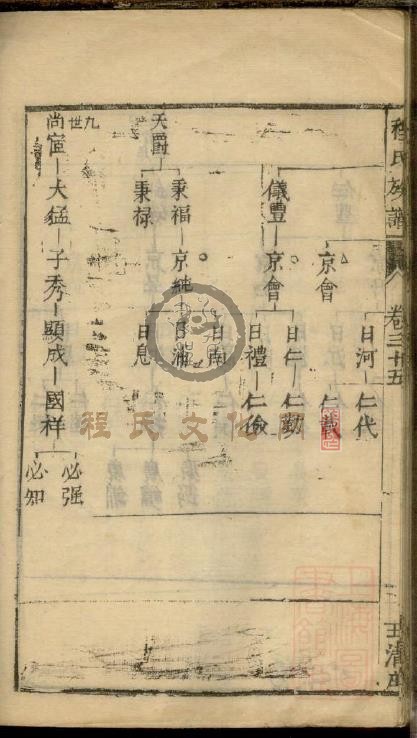 程氏族譜
卷三十五
日河 仁代
京會
仁載
儀豐 京會 日仁 仁勤
日禮 仁儉
天爵 秉福 京純 日南
日浦
日息
秉禄
九世
尚宦 大猛 子秀 顯成 國祥 必强
必知
程氏文化